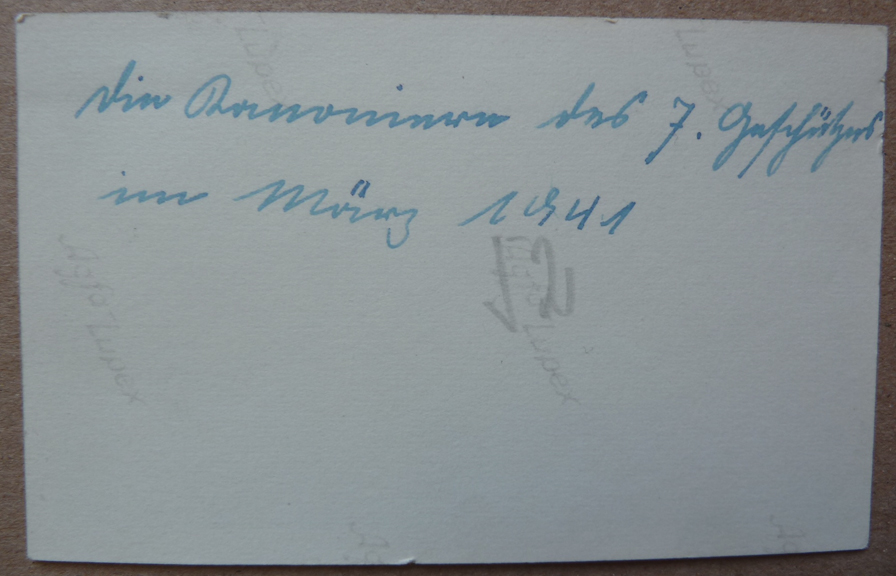 Die Kanoniere des 7. Geschützes
im März 1941
12
Agfa-Lupex
Agfa-Lupex
Lupex
Lupex